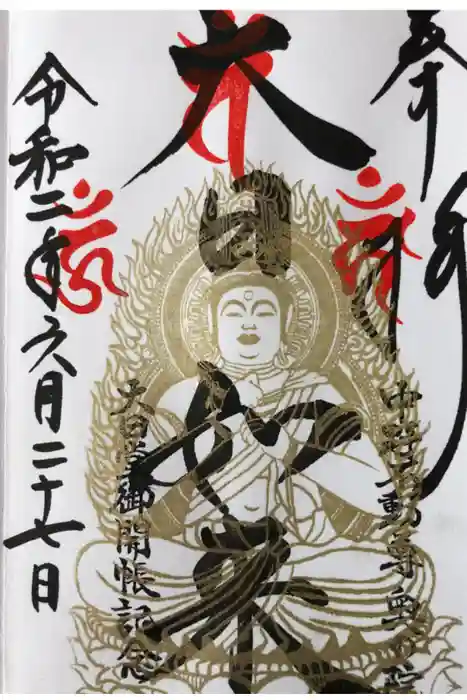 奉拝
中野不動尊奥の院
大日如来
大日堂御開帳記念
令和二年六月二十七日